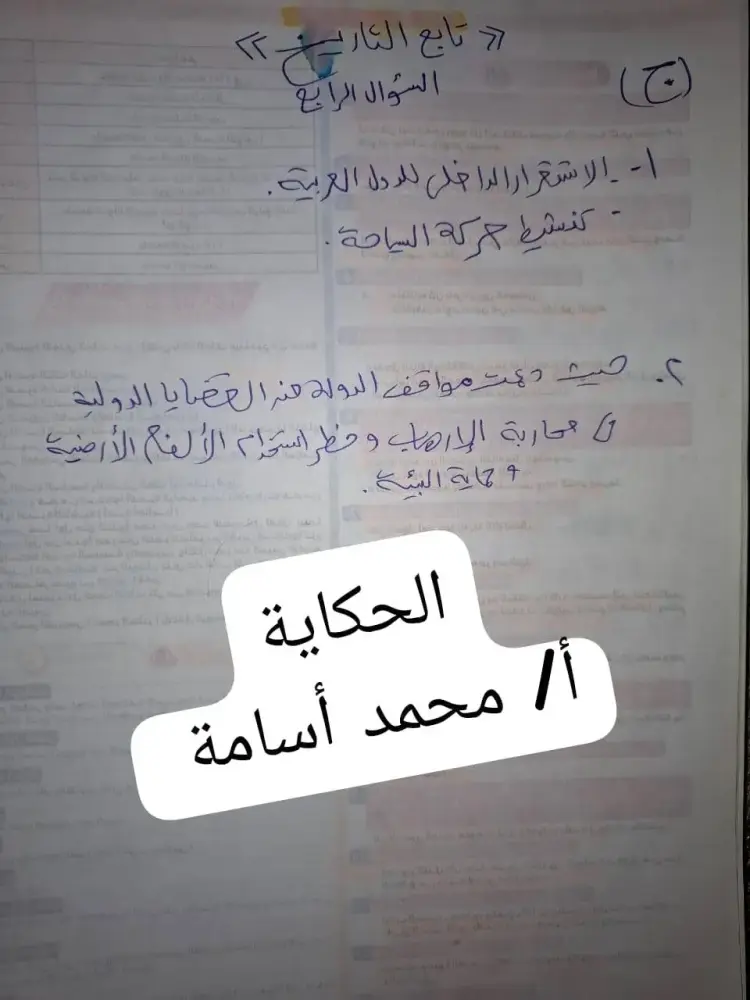 « تابع التاريخ »
(ج)
السؤال الرابع
١- الاستقرار الداخلى للدول العربية.
- كتنشيط حركة السياحة.
٢. حيث دعمت مواقف الدولة من القضايا الدولية
محاربة الإرهاب وحظر استخدام الألغام الأرضية
وحماية البيئة.
الحكاية
أ/ محمد أسامة